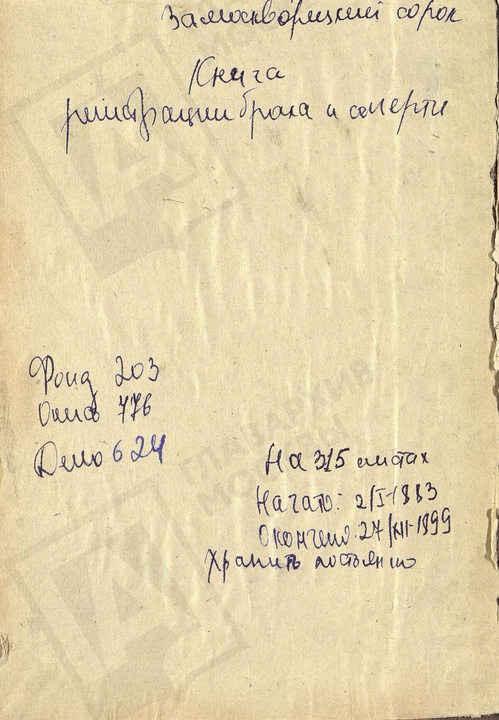 Замоскворецкий сорок
Книга
регистрации брака и смерти
Фонд 203
Опись 776
Дело 624
На 315 листах
Начато: 2/I-1883
Окончено: 27/XII-1899
Хранить постоянно
ГЛАВАРХИВ
МОСКВЫ